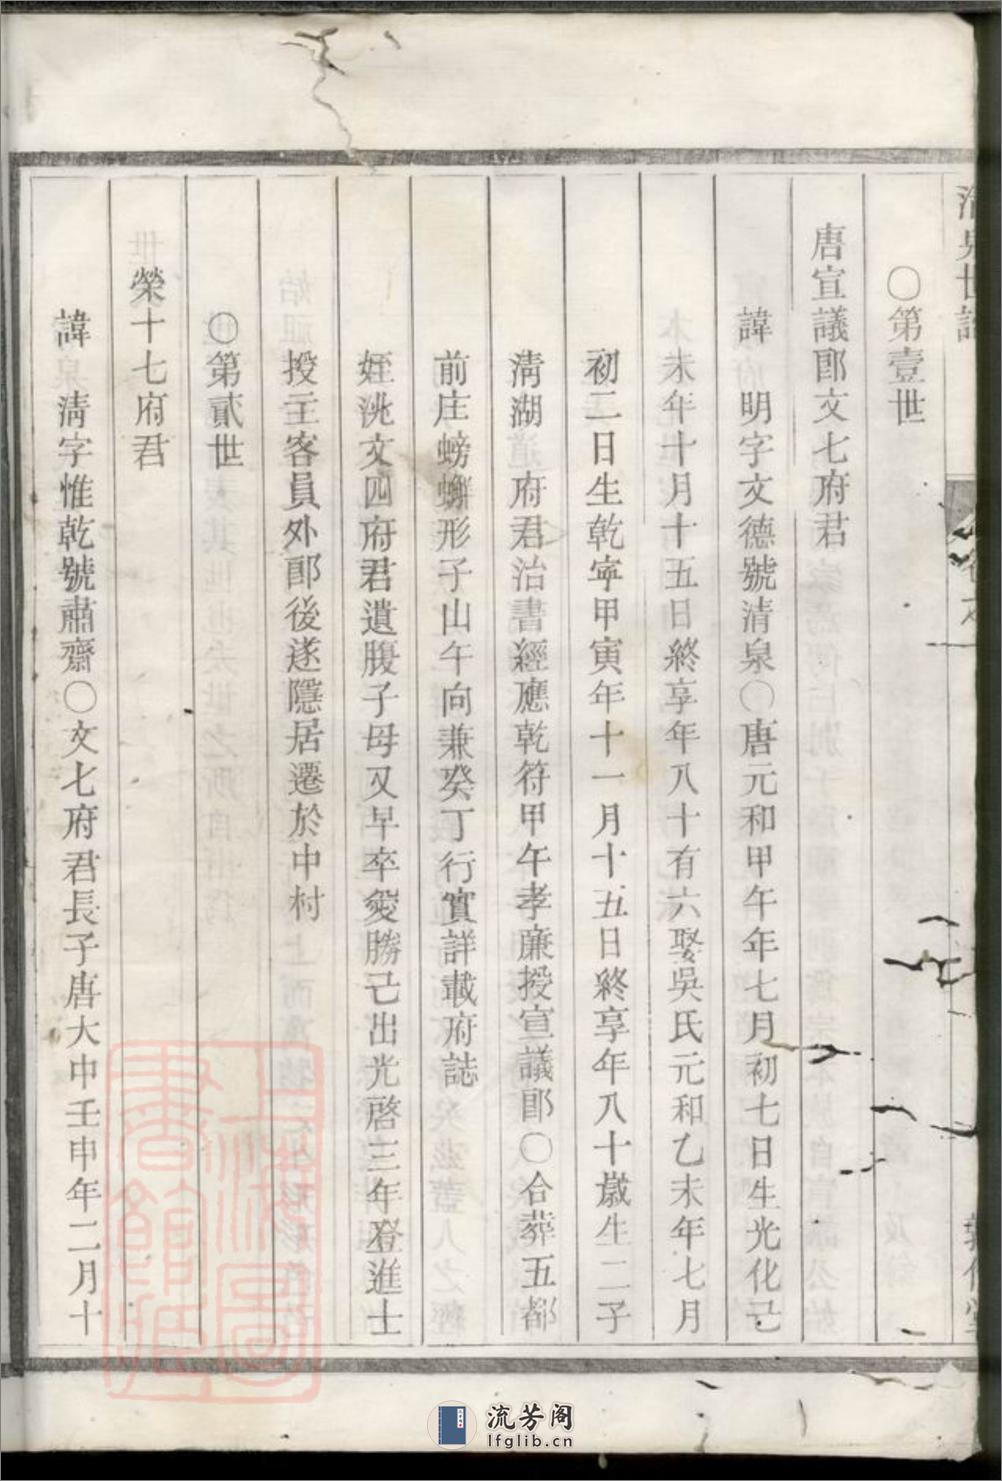 〇第壹世
唐宣議郎文七府君
諱　明字文德號清泉〇唐元和甲午年七月初七日生光化己
未年十月十五日終享年八十有六娶吳氏元和乙未年七月
初二日生乾寧甲寅年十一月十五日終享年八十歲生二子
淸湖　府君治書經應乾符甲午孝廉授宣議郎〇合葬五都
前庄螃蠏形子山午向兼癸丁行實詳載府誌
姪洮文四府君遺腹子母又早卒愛勝己出光啓三年登進士
授主客員外郎後遂隱居遷於中村
〇第貳世
榮十七府君
諱　淸字惟乾號肅齋〇文七府君長子唐大中壬申年二月十
流芳阁
lfglib.cn